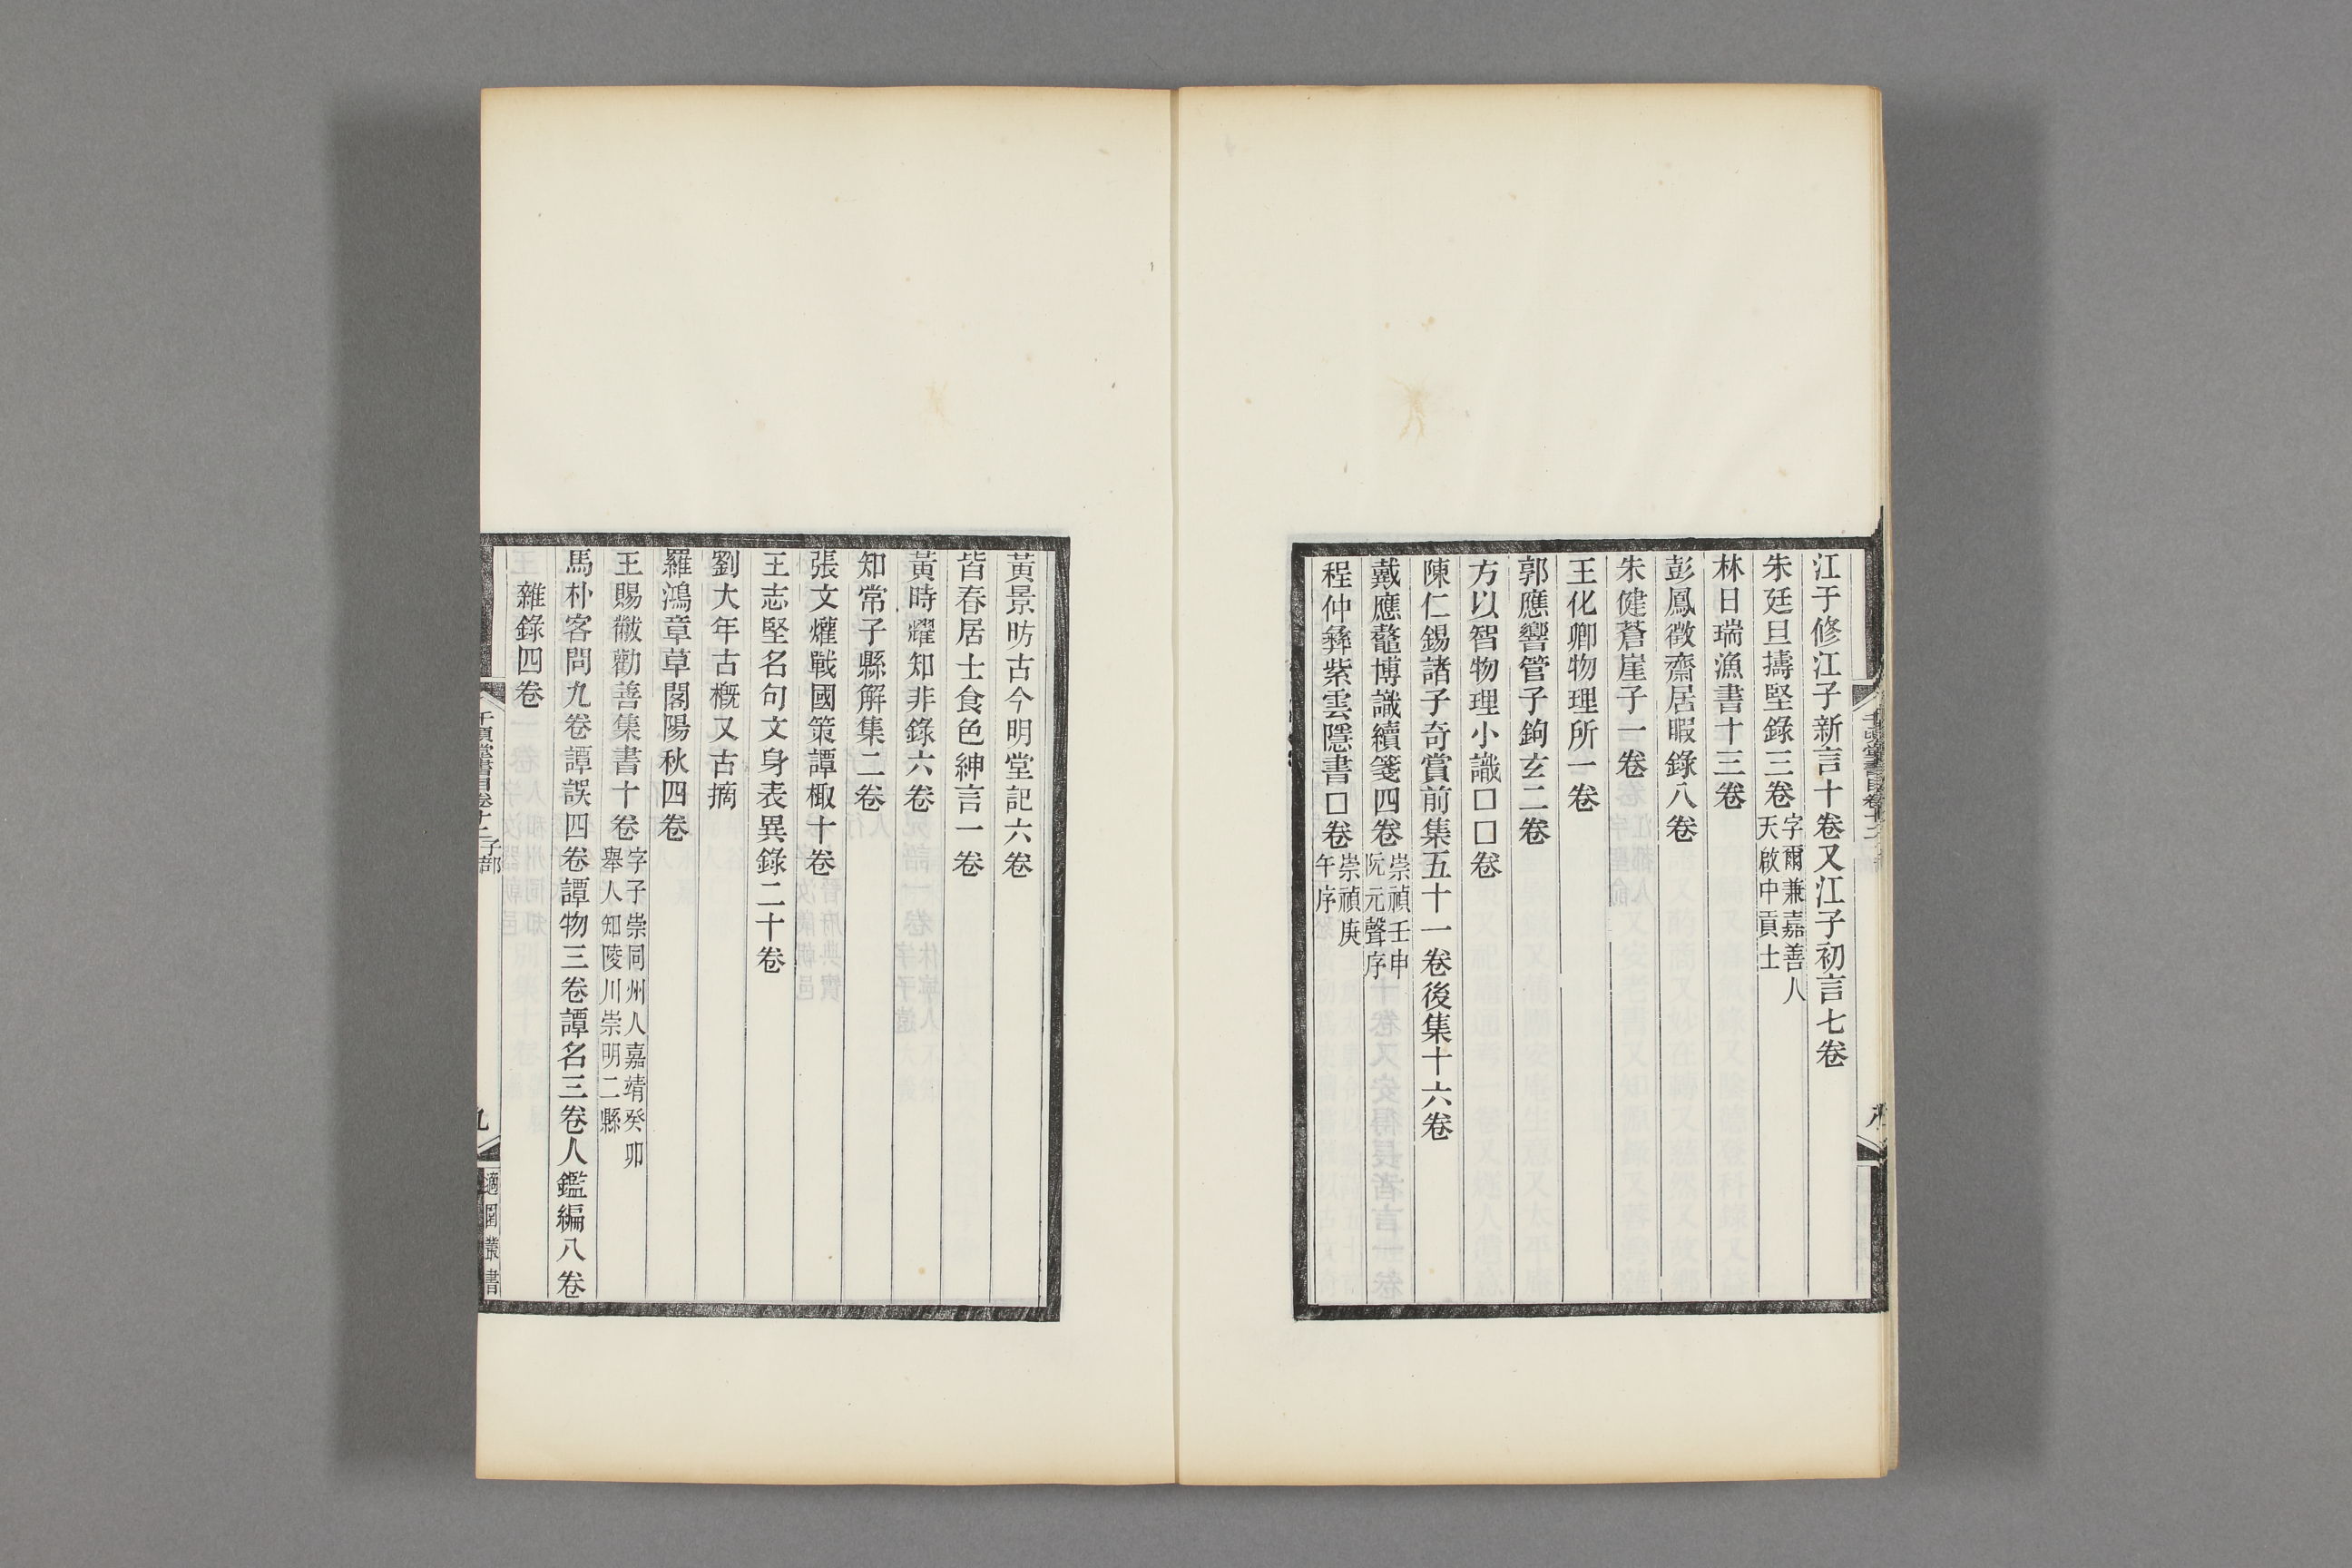 江于修江子新言十卷又江子初言七卷
朱廷旦擣堅錄三卷字爾兼嘉善人天啟中貢士
林日瑞漁書十三卷
彭鳳徵齋居暇錄八卷
朱健蒼崖子一卷
王化卿物理所一卷
郭應響管子鉤玄二卷
方以智物理小識口口卷
陳仁錫諸子奇賞前集五十一卷後集十六卷
戴應鼇博識續箋四卷崇禎壬申阮元聲序
程仲彝紫雲隱書口卷崇禎庚午序
黃景昉古今明堂記六卷
皆春居士食色紳言一卷
黃時耀知非錄六卷
知常子縣解集二卷
張文爟戰國策譚棷十卷
王志堅名句文身表異錄二十卷
劉大年古概又古摘
羅鴻章草閣陽秋四卷
王賜黻勸善集書十卷字子崇同州人嘉靖癸卯舉人知陵川崇明二縣
馬朴客問九卷譚誤四卷譚物三卷譚名三卷人鑑編八卷
雜錄四卷
千頃堂書目卷十二子部
九
適園叢書